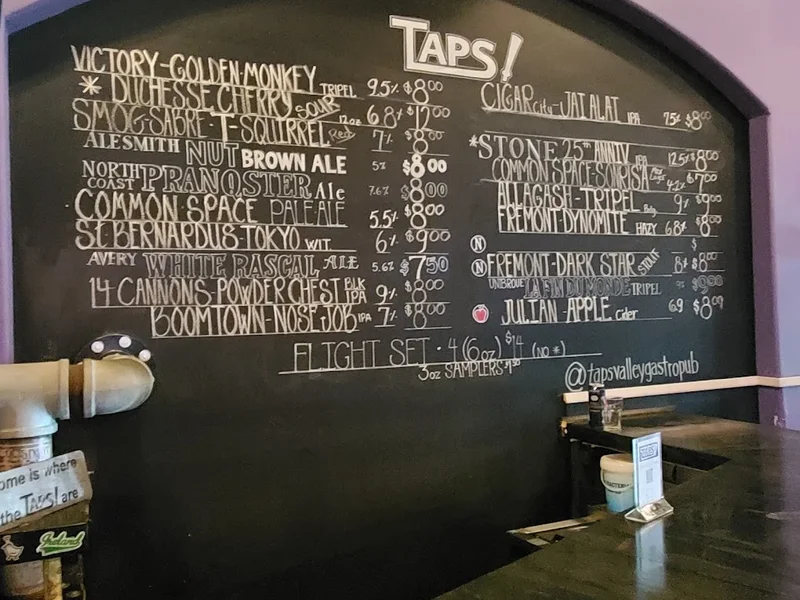 TAPS!
VICTORY-GOLDEN-MONKEY TRIPEL 9.5% $8.00
* DUCHESSE CHERRY SOUR 12oz 6.8% $12.00
SMOG-SABRE-T-SQUIRREL Red 7% $8.00
ALESMITH NUT BROWN ALE 5% $8.00
NORTH COAST PRANQSTER Ale 7.6% $8.00
COMMON SPACE PALE ALE 5.5% $8.00
St. BERNARDUS-TOKYO WIT 6% $9.00
AVERY WHITE RASCAL ALE 5.6% $7.50
14 CANNONS-POWDER CHEST BLK IPA 9% $8.00
BOOMTOWN-NOSE JOB IPA 7% $8.00
CIGAR City-JAI ALAI IPA 7.5% $8.00
*STONE 25th ANNIV. IPA 12.5% $8.00
COMMON SPACE-SONRISA 4.2% $7.00
ALLAGASH-TRIPEL Belg. 9% $9.00
FREMONT-DYNOMITE HAZY 6.8% $8.00
N $
N FREMONT-DARK STAR STOUT 8% $8.00
UNIBROUE LA FIN DU MONDE TRIPEL 9% $9.00
JULIAN APPLE Cider 6.9 $8.00
FLIGHT SET · 4 (6oz) $14 (NO *)
3oz SAMPLERS
@tapsvalleygastropub
ome is where
the TAPS! are
Ireland